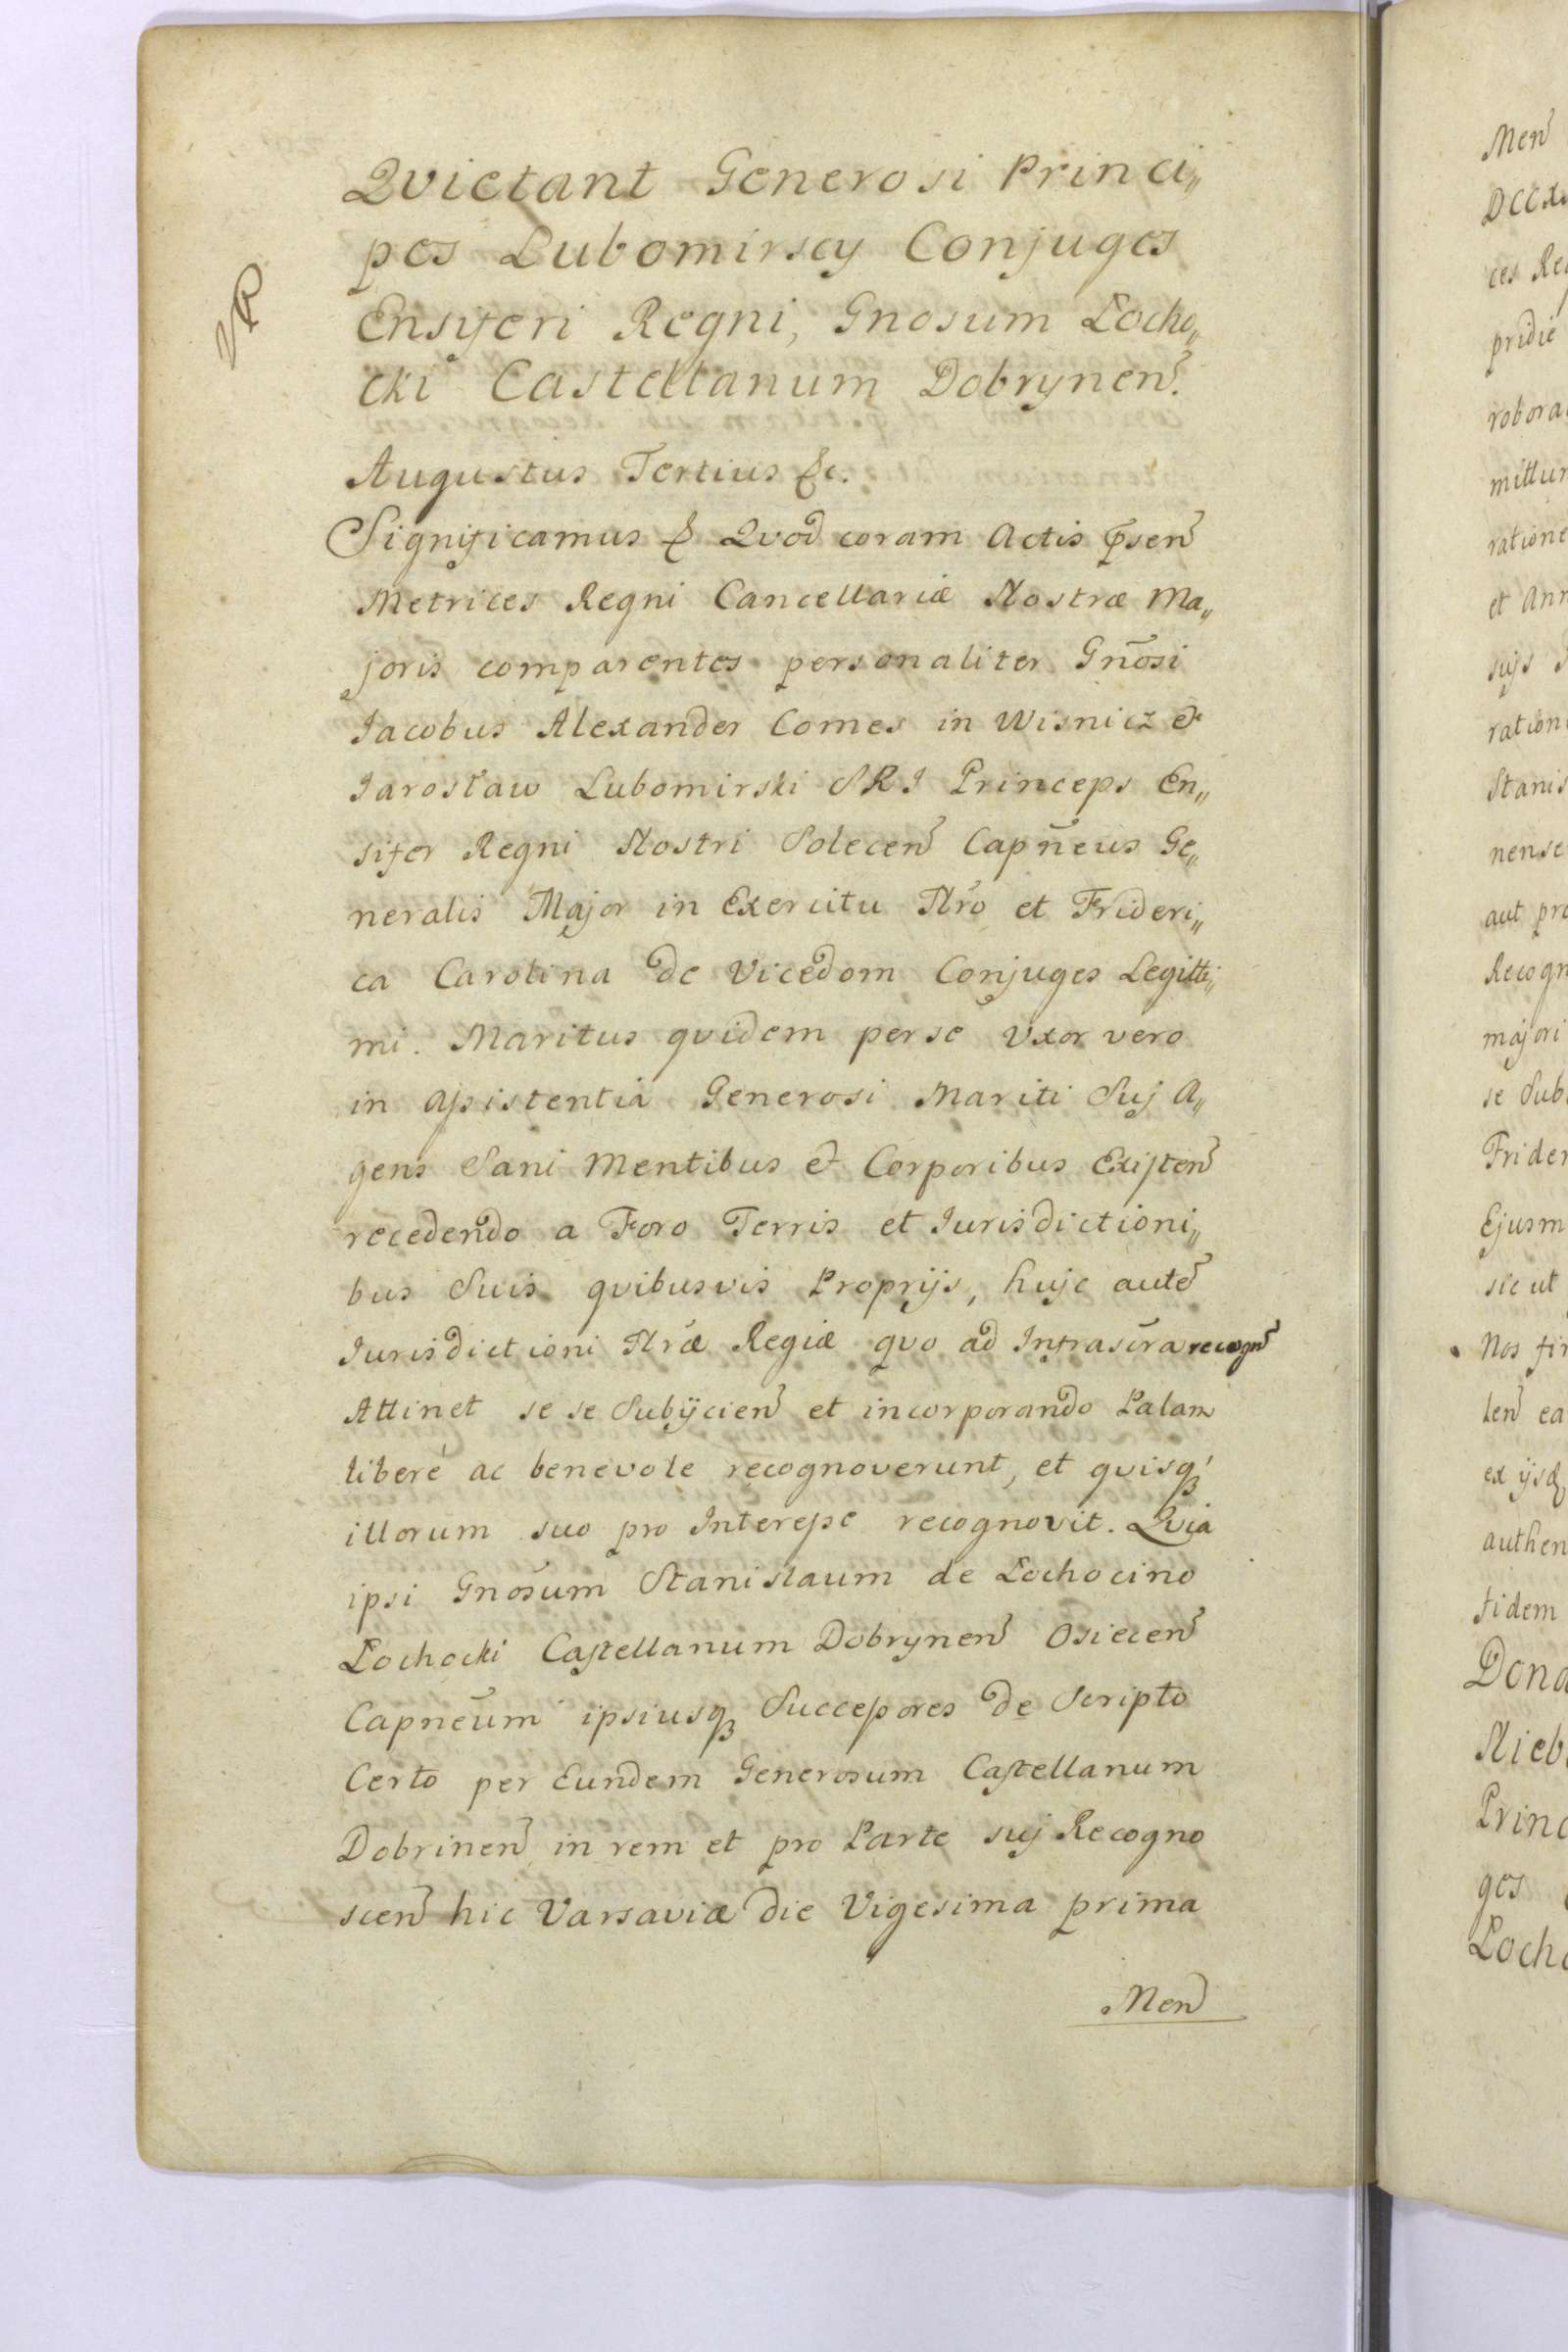 Qvietant Generosi Princi„
pes Lubomirscy Conjuges
Ensiferi Regni, Gnosum Łocho„
cki Castellanum Dobrynen̄.
Augustus Tertius &c.
Significamus & Qvod coram Actis p̄sen̄
Metrices Regni Cancellariæ Nostræ Ma„
joris comparentes personaliter Gn̄osi
Jacobus Alexander Comes in Wisnicz &
Jarosław Lubomirski SRJ Princeps En„
sifer Regni Nostri Solecen̄ Capn̄eus Ge„
neralis Major in Exercitu Nr̄o et Frideri„
ca Carolina de Vicedom Conjuges Legitti„
mi. Maritus qvidem per se Uxor vero
in Assistentia Generosi Mariti Suj A„
gens Sani Mentibus & Corporibus Existen̄
recedendo a Foro Terris et Jurisdictioni„
bus Suis qvibusvis Proprijs, hujc autē
Jurisdictioni Nr̄æ Regiæ qvo ad Infrascr̄a recogn̄
Attinet se se Subijcien̄ et incorporando Palam
liberè ac benevole recognoverunt, et qvisq́;
illorum suo pro Interesse recognovit. Qvia
ipsi Gnōsum Stanislaum de Łochocino
Łochocki Castellanum Dobrynen̄ Osiecen̄
Capnēum ipsiusq; Successores de Scripto
Certo per Eundem Generosum Castellanum
Dobrinen̄ in rem et pro Parte suj Recogno
scen̄ hic Varsaviæ die Vigesima prima
Men̄
Men̄
ces Reg
pridie
robora
mittun
ratione
et Ann
sujs
ration
Stanis
nense
aut pro
Recogn
majori
se Sub
Frider
Ejusm
sic ut
Nos fir
len̄ ea
ex ijsq;
authen
fidem
Dona
Nieb
Princ
ges
Łocho